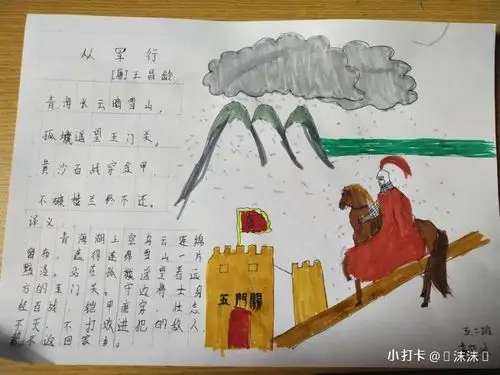 从军行
[唐]王昌龄
青海长云暗雪山，
孤城遥望玉门关。
黄沙百战穿金甲，
不破楼兰终不还。
译义：
青海湖上空乌云连绵
雪山一片
站在孤城遥望着远
方的玉门关。守边将士身
经百战，铠甲磨穿，壮志
不灭，不打败进犯的敌人
誓不返回家乡。
五門關
五二班
小打卡@沫沫